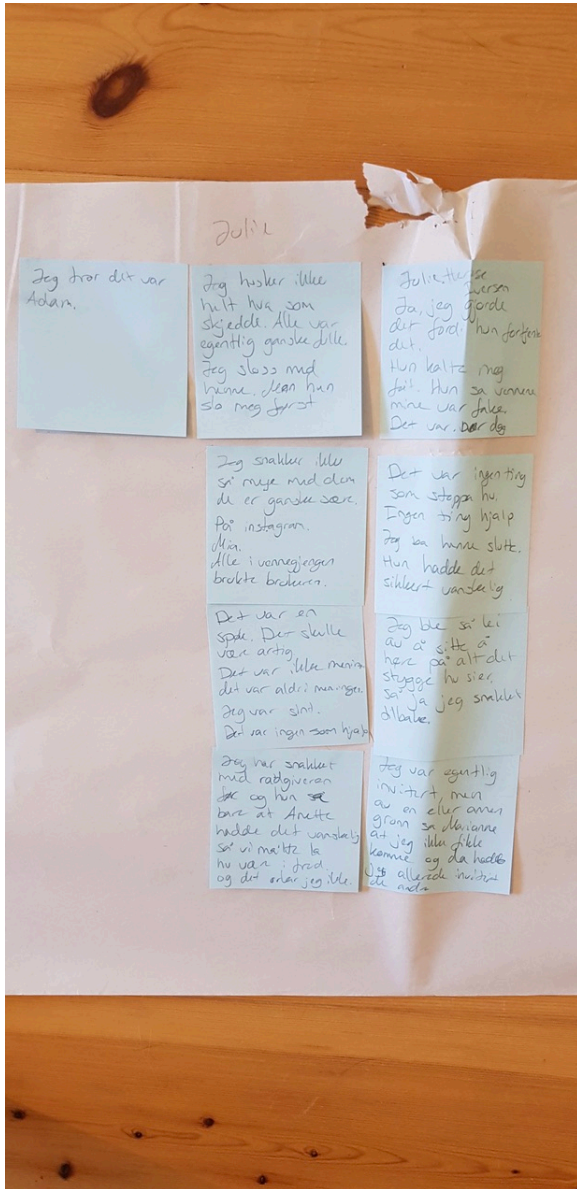 Julie
Jeg tror det var
Adam.
Jeg husker ikke
helt hva som
skjedde. Alle var
egentlig ganske fulle
Jeg sloss med
henne. Men hun
slo meg først
Jeg snakker ikke
så mye med dem
de er ganske sære.
På instagram.
Mia.
Alle i vennegjengen
brukte brukeren.
Det var en
spøk. Det skulle
være artig
Det var ikke meninga
det var aldri meningen
Jeg var sint.
Det var ingen som hjalp
Jeg har snakket
med rådgiveren
og hun sa
bare at Anette
hadde det vanskelig
så vi måtte la
hu være i fred
og det orker jeg ikke.
Julie Therese
Iversen
Ja, jeg gjorde
det fordi hun fortjente
det.
Hun kalte meg
feit. Hun sa vennene
mine var fake.
Det var deg
Det var ingen ting
som stoppa hu.
Ingen ting hjalp
Jeg ba henne slutte.
Hun hadde det
sikkert vanskelig
Jeg ble så lei
av å sitte å
høre på alt det
stygge hu sier,
så ja jeg snakket
tilbake.
Jeg var egentlig
invitert, men
av en eller annen
grunn sa Marianne
at jeg ikke fikk
komme og da hadde
jeg allerede invitert
de andre